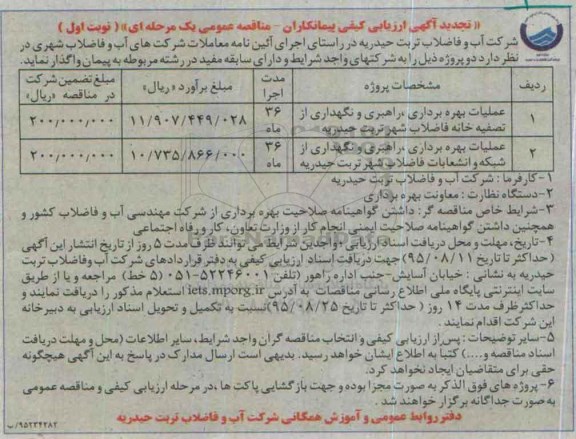 « تجدید آگهی ارزیابی کیفی پیمانکاران - مناقصه عمومی یک مرحله ای» ( نوبت اول )
شرکت آب و فاضلاب تربت حیدریه در راستای اجرای آئین نامه معاملات شرکت های آب و فاضلاب شهری در
نظر دارد دو پروژه ذیل را به شرکتهای واجد شرایط و دارای سابقه مفید در رشته مربوطه به پیمان واگذار نماید.
ردیف مشخصات پروژه مدت اجرا مبلغ برآورد «ریال» مبلغ تضمین شرکت در مناقصه «ریال»
۱ عملیات بهره برداری ،راهبری و نگهداری از تصفیه خانه فاضلاب شهر تربت حیدریه ۳۶ ماه ۱۱/۹۰۷/۴۴۹/۰۲۸ ۲۰۰/۰۰۰/۰۰۰
۲ عملیات بهره برداری ،راهبری و نگهداری از شبکه و انشعابات فاضلاب شهر تربت حیدریه ۳۶ ماه ۱۰/۷۳۵/۸۶۶/۰۰۰ ۲۰۰/۰۰۰/۰۰۰
۱-کارفرما : شرکت آب و فاضلاب تربت حیدریه
۲-دستگاه نظارت : معاونت بهره برداری
۳-شرایط خاص مناقصه گر: داشتن گواهینامه صلاحیت بهره برداری از شرکت مهندسی آب و فاضلاب کشور و
همچنین داشتن گواهینامه صلاحیت ایمنی انجام کار از وزارت تعاون، کار و رفاه اجتماعی
۴-تاریخ، مهلت و محل دریافت اسناد ارزیابی : واجدین شرایط می توانند ظرف مدت ۵ روز از تاریخ انتشار این آگهی
(حداکثر تا تاریخ ۹۵/۰۸/۱۱) جهت دریافت اسناد ارزیابی کیفی به دفتر قراردادهای شرکت آب وفاضلاب تربت
حیدریه به نشانی : خیابان آسایش-جنب اداره راهور (تلفن ۵۲۲۴۶۰۰۱-۰۵۱ (۵ خط) مراجعه و یا از طریق
سایت اینترنتی پایگاه ملی اطلاع رسانی مناقصات به آدرس iets.mporg.ir استعلام مذکور را دریافت نمایند و
حداکثر ظرف مدت ۱۴ روز ( حداکثر تا تاریخ ۹۵/۰۸/۲۵) نسبت به تکمیل و تحویل اسناد ارزیابی به دبیرخانه
این شرکت اقدام نمایند .
۵-سایر توضیحات : پس از ارزیابی کیفی و انتخاب مناقصه گران واجد شرایط، سایر اطلاعات (محل و مهلت دریافت
اسناد مناقصه و....) کتبا به اطلاع ایشان خواهد رسید. بدیهی است ارسال مدارک در پاسخ به این آگهی هیچگونه
حقی برای متقاضیان ایجاد نخواهد کرد.
۶-پروژه های فوق الذکر به صورت مجزا بوده و جهت بازگشایی پاکت ها ،در مرحله ارزیابی کیفی و مناقصه عمومی
به صورت جداگانه برگزار خواهند شد .
دفتر روابط عمومی و آموزش همگانی شرکت آب و فاضلاب تربت حیدریه
۹۵۲۳۴۲۸۲/ب